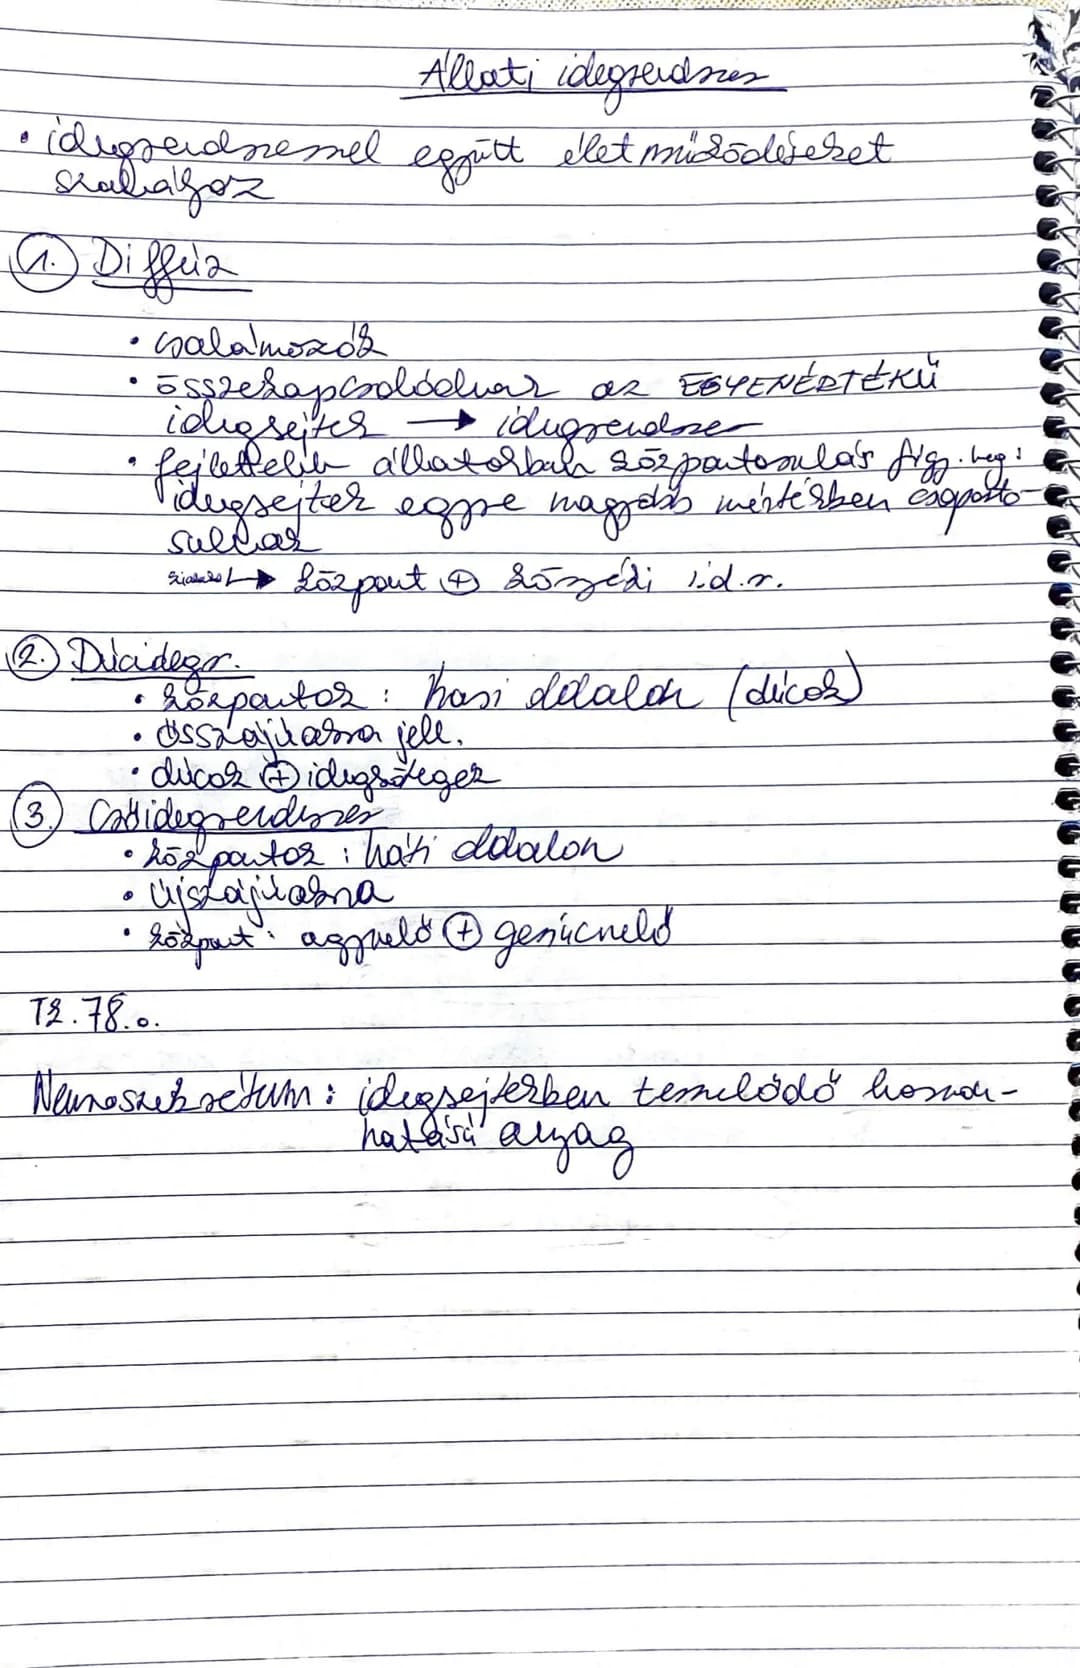 Állati idegrendszer
• idegrendszerrel együtt életműködéseket
szabályoz
1. Diffúz
• csalánozók
• összekapcsolódnak az EGYENÉRTÉKŰ
idegsejtek → idegrendszer
• fejlettebb állatokban központosulás figy. meg:
idegsejtek egyre nagyobb mértékben csoporto-
sulnak
kialakul → központ + környéki i.d.r.
2. Dúcidegr.
• központok: hasi oldalon (dúcok)
• ősszájúakra jell.
• dúcok + idegkötegek
3. Csőidegrendszer
• központok: háti oldalon
• újszájúakra
• központ: agyvelő + gerincvelő
TK. 78.o.
Neuroszekrétum: idegsejtekben termelődő hormon-
hatású anyag